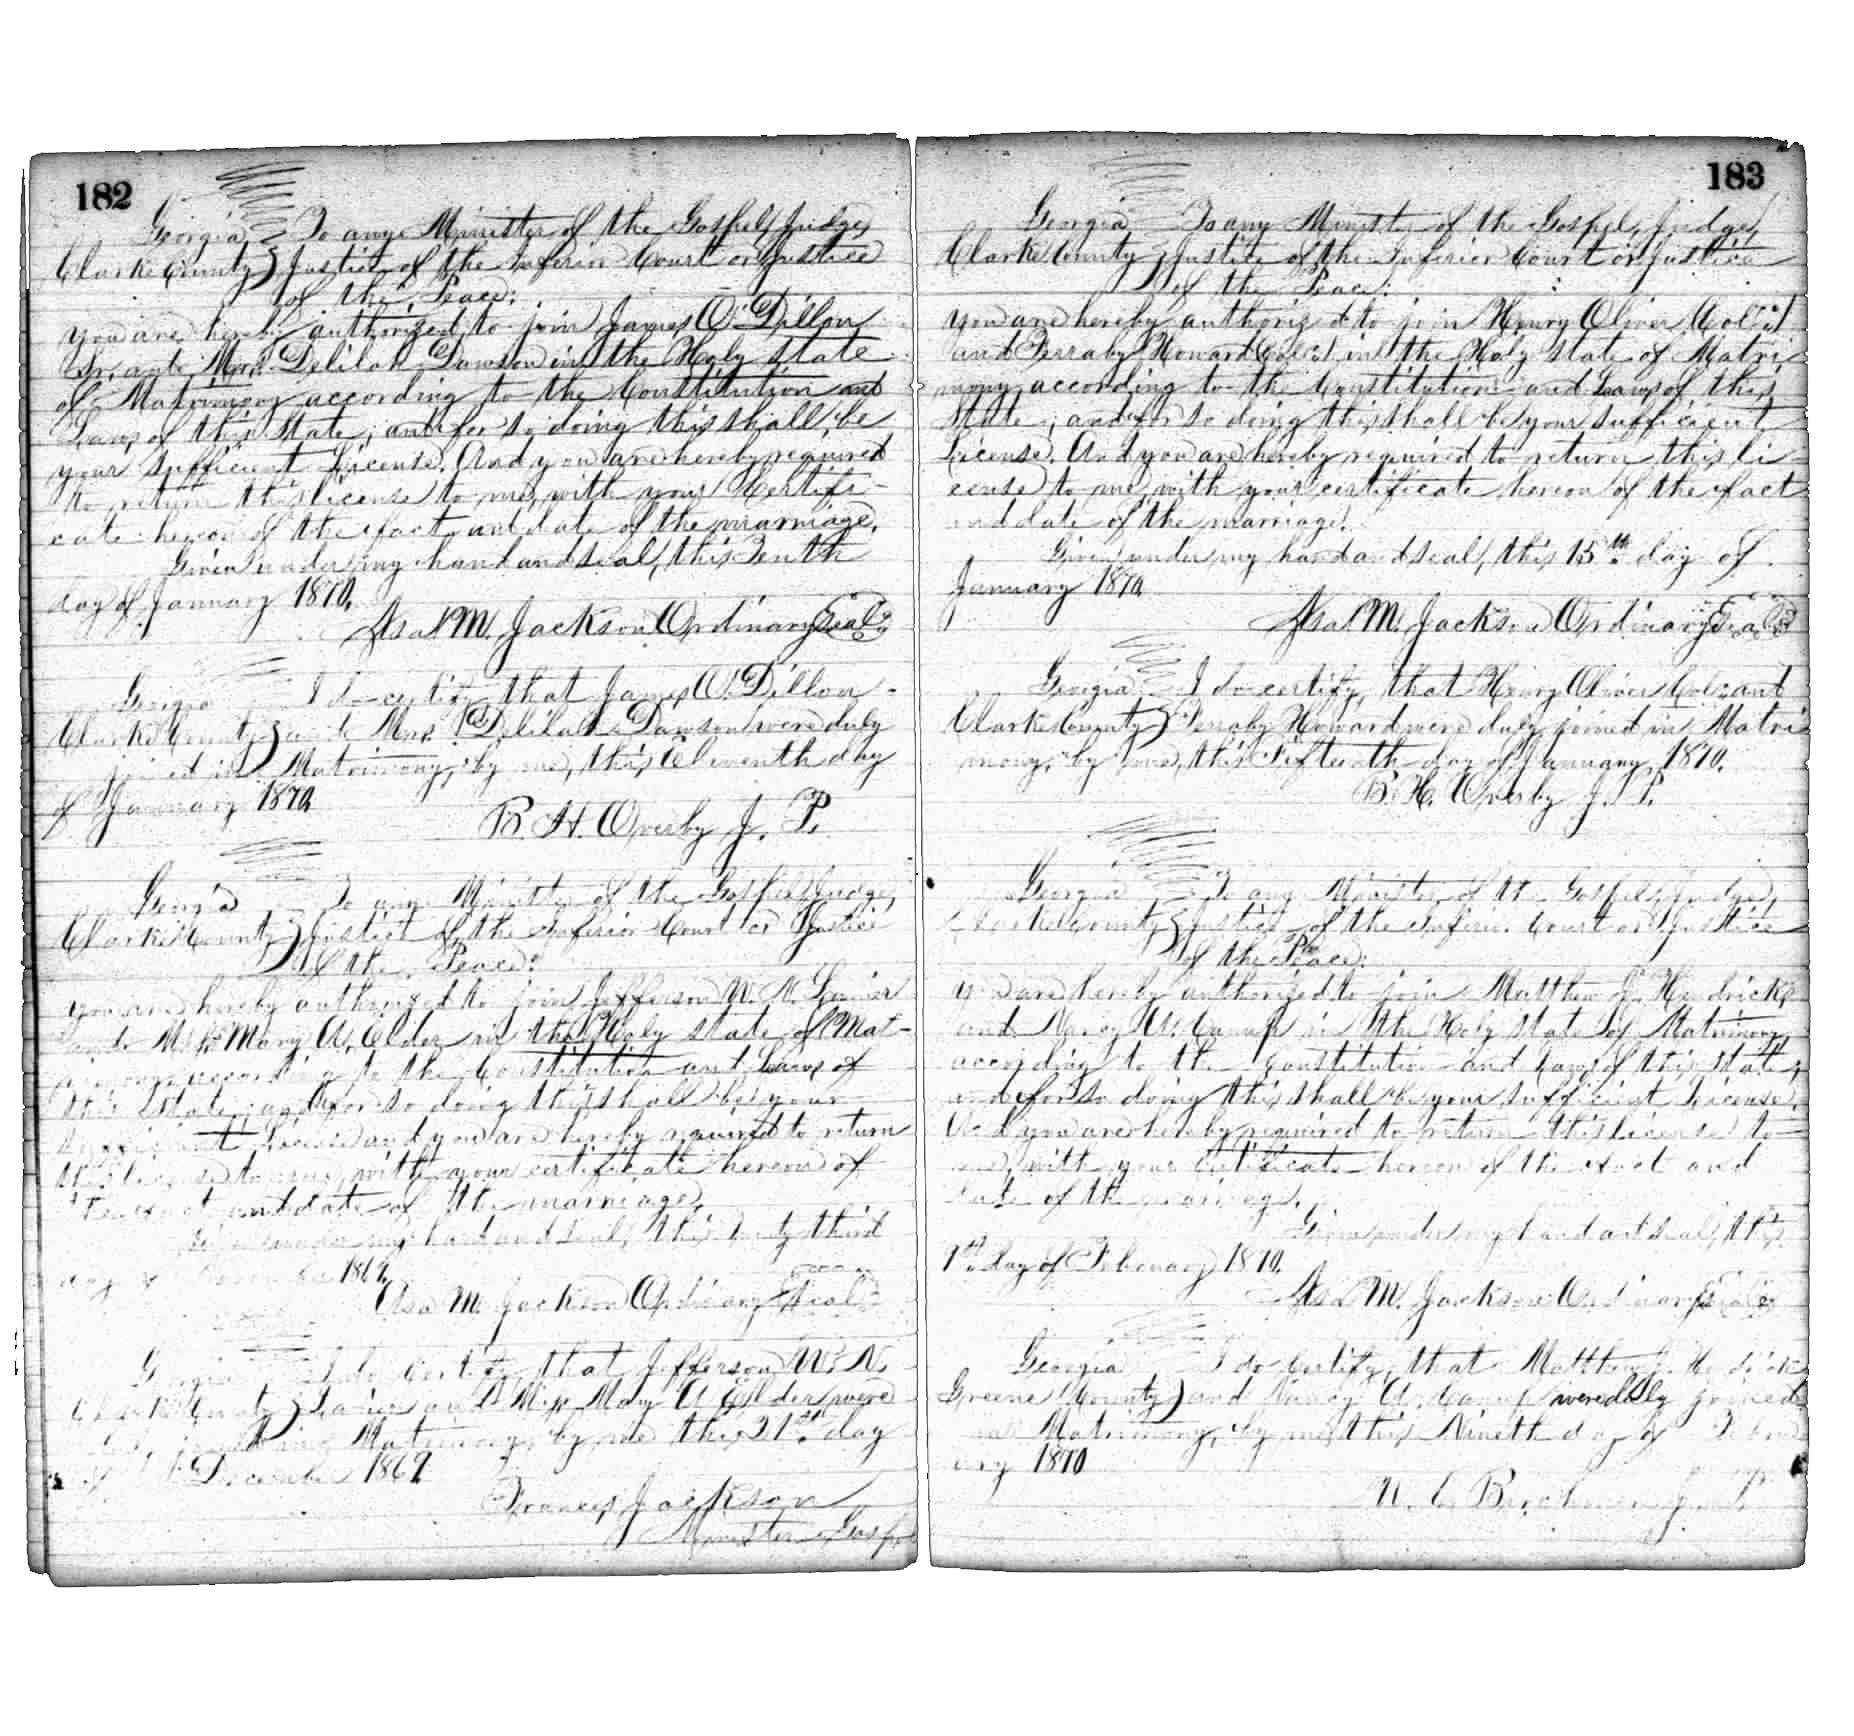 182
Georgia To any Minister of the Gospel, Judge,
Clarke County Justice of the Inferior Court or Justice
of the Peace:
you are hereby authorized to join James O. Dillon
Sr. and Mrs. Delilah Dawson in the Holy state
of Matrimony according to the Constitution and
Laws of this State; and for so doing this shall be
your sufficient License. And you are hereby required
to return this license to me, with your Certifi-
cate hereon of the fact and date of the marriage.
Given under my hand and seal, this Tenth
day of January 1870.
Asa M. Jackson Ordinary Seal
Georgia I do certify that James O. Dillon
Clarke County and Mrs. Delilah Dawson were duly
joined in Matrimony, by me, this Eleventh day
of January 1870
B. H. Overby J. P.
Georgia To any Minister of the Gospel, Judge,
Clarke County Justice of the Inferior Court or Justice
of the Peace:
you are hereby authorized to join Jefferson W. N. Lanier
and Miss Mary A. Elder in the Holy state of Mat-
rimony according to the Constitution and Laws of
this State; and for so doing this shall be your
sufficient License and you are hereby required to return
this license to me, with your certificate hereon of
the fact and date of the marriage.
Given under my hand and seal, this twenty third
day of 1869.
Asa M. Jackson Ordinary Seal
Georgia I do certify that Jefferson W. N.
Clarke County Lanier and Miss Mary A. Elder were
joined in Matrimony, by me this 21st day
of December 1869
Frances Jackson
Minister Gosp
183
Georgia To any Minister of the Gospel, Judge,
Clarke County Justice of the Inferior Court or Justice
of the Peace:
you are hereby authorized to join Henry Oliver Col'd
and Ferraby Howard Col'd in the Holy state of Matri
mony, according to the Constitution and Laws of this
State; and for so doing this shall be your sufficient
License. And you are hereby required to return this li-
cense to me, with your certificate hereon of the fact
and date of the marriage.
Given under my hand and seal, this 15th day of
January 1870
Asa M. Jackson Ordinary Seal
Georgia I do certify, that Henry Oliver Col: and
Clarke County Ferraby Howard were duly joined in Matri
mony, by me, this Fifteenth day of January, 1870.
B. H. Overby J. P.
Georgia To any Minister of the Gospel, Judge,
Clarke County Justice of the Inferior Court or Justice
of the Peace:
you are hereby authorized to join Matthew J. Hendricks
and Nancy A. in the Holy state of Matrimony,
according to the Constitution and Laws of this State;
and for so doing this shall be your sufficient License.
And you are hereby required to return this license to
me, with your Certificate hereon of the fact and
date of the marriage.
Given under my hand and seal, this
1st day of February 1870.
Asa M. Jackson Ordinary Seal
Georgia I do certify, that Matthew J. Hendricks
Greene County and Nancy A. were duly joined
in Matrimony, by me, this Nineth day of Febru
ary 1870